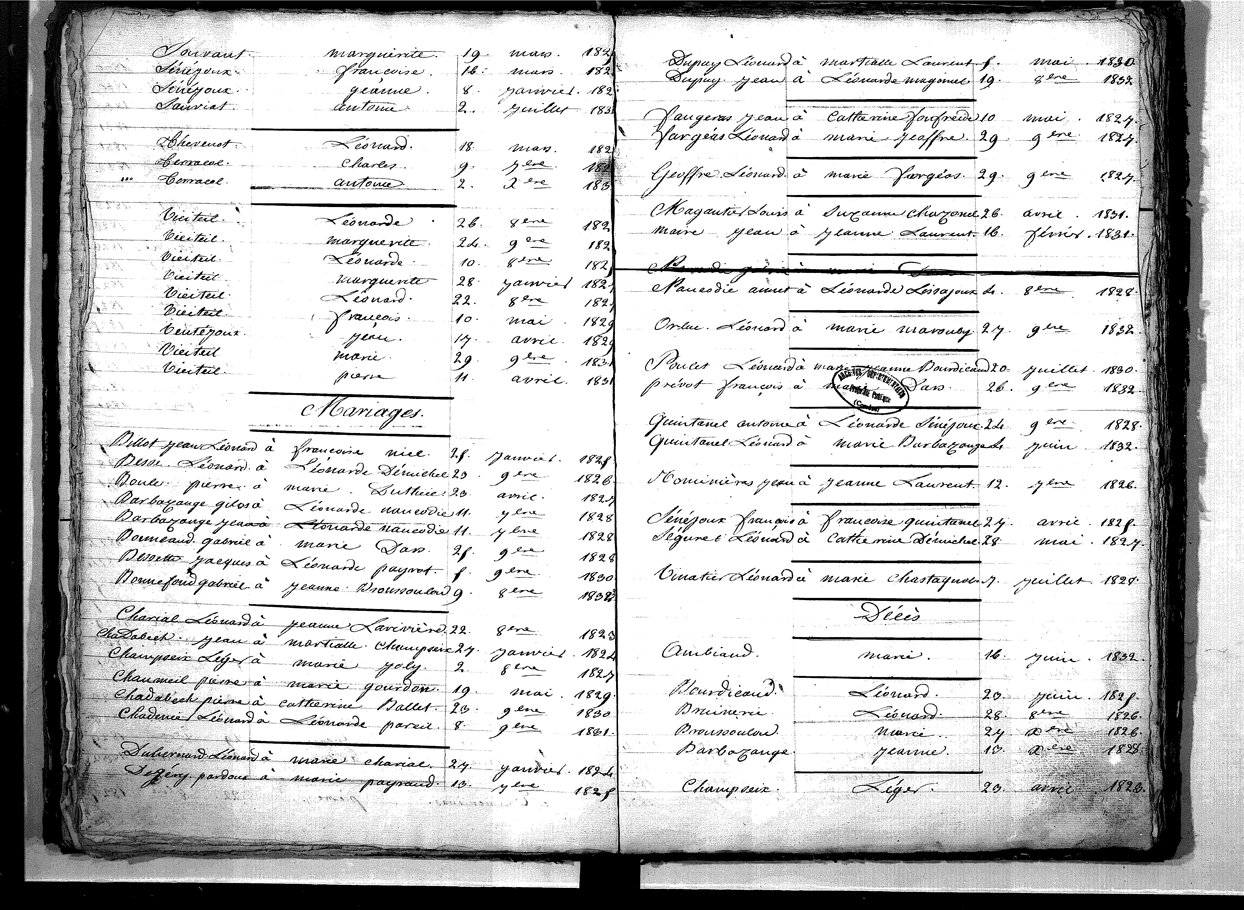 Souvant. marguerite. 19. mars. 182
Sénéjoux. françoise. 16. mars. 182
Sénéjoux. jeanne. 8. janvier. 182
Sauviat. antoine. 2. juillet. 183
Thévenot. Léonard. 18. mars. 182
Terracol. Charles. 9. 7ere 182
Terracol. antoine 2. Xere 183
Vieiteil. Léonarde. 26. 8ere 182
Vieiteil. marguerite. 24. 9ere 182
Vieiteil. Léonarde. 10. 8ere 182
Vieiteil. marguerite. 28. janvier 182
Vieiteil. Léonard. 22. 8ere 182
Vieiteil. françois. 10. mai. 1829
jean. 17. avril. 1829
Vieiteil marie. 29. 9ere 1831
Vieiteil. pierre 11. avril. 1831
Mariages.
Billot jean Léonard à françoise nicé. janvier. 182
Besse. Léonard. à Léonarde Démichel 23. 9ere 1826
Boule. pierre. à marie. Dutheil 23. avril. 1827
Barbazange gilos à Léonarde naucodie 11. 7ere 1828
Barbazange jean à Léonarde naucodie 11. 7ere 1828
Bonneaud. gabriel à marie Dars. 9ere 1828
jacques à Léonarde payrot. 9ere 1830
Bonnefond gabriel à jeanne Broussouloud 9. 8ere 1832
Charial Léonard à jeanne Lavivière. 22. 8ere 1823
Chadabech. jean à martialle Champseix 27. janvier. 1824
Champseix Léger à marie joly. 2. 8ere 1827
Chaumeil pierre à marie gourdon. 19. mai. 1829
Chadabech pierre à Catherine Ballet. 23. 9ere 1830
Chadenié Léonard à Léonarde pareil. 8. 9ere 1831
Dubernard Léonard à marie charial. 27. janvier. 1824
pardoux à marie payraud. 13. 7ere 182
Dupuy Léonard à martialle Laurent mai. 1830
Dupuy jean à Léonarde magimel 19. 8ere 1832
faugeras jean à Catherine jonfreide 10 mai. 1827
fargéas Léonard à marie jeoffre. 29. 9ere 1827
Geoffre Léonard. à marie fargéas. 29. 9ere 1827
Magautier Louis à Suzanne Chazouel 26. avril. 1831
maire jean à jeanne Laurent. 16. février. 1831
Naucodie aimet à Léonarde Lessajoux 4. 8ere 1828
Orlue. Léonard à marie marouby 27. 9ere 1832
Poulet Léonard à marie jeanne Bourdicaud 20 juillet 1830
prévot françois à marie Dars. 26. 9ere 1832
Quintanel antoine à Léonarde Sénéjoux 24. 9ere 1828
Quintanel Léonard à marie Barbazange 4. juin 1832
jean à jeanne Laurent. 12. 7ere 1826
Sénéjoux françois à francoise quintanel 27. avril 182
Séguret Léonard à Catherine Démichel 28. mai. 1827
Vinatier Léonard à marie Chastagnol 7. juillet 1828
Décès
Ambiaud. marie. 16. juin. 1832
Bourdicaud. Léonard. 23. juin. 182
Bruinerie. Léonard. 28. 8ere 1826
Broussouloud marie. 27. Xere 1826
Barbazange jeanne. 13. Xere 1828
Champseix. Léger. 23. avril 1823